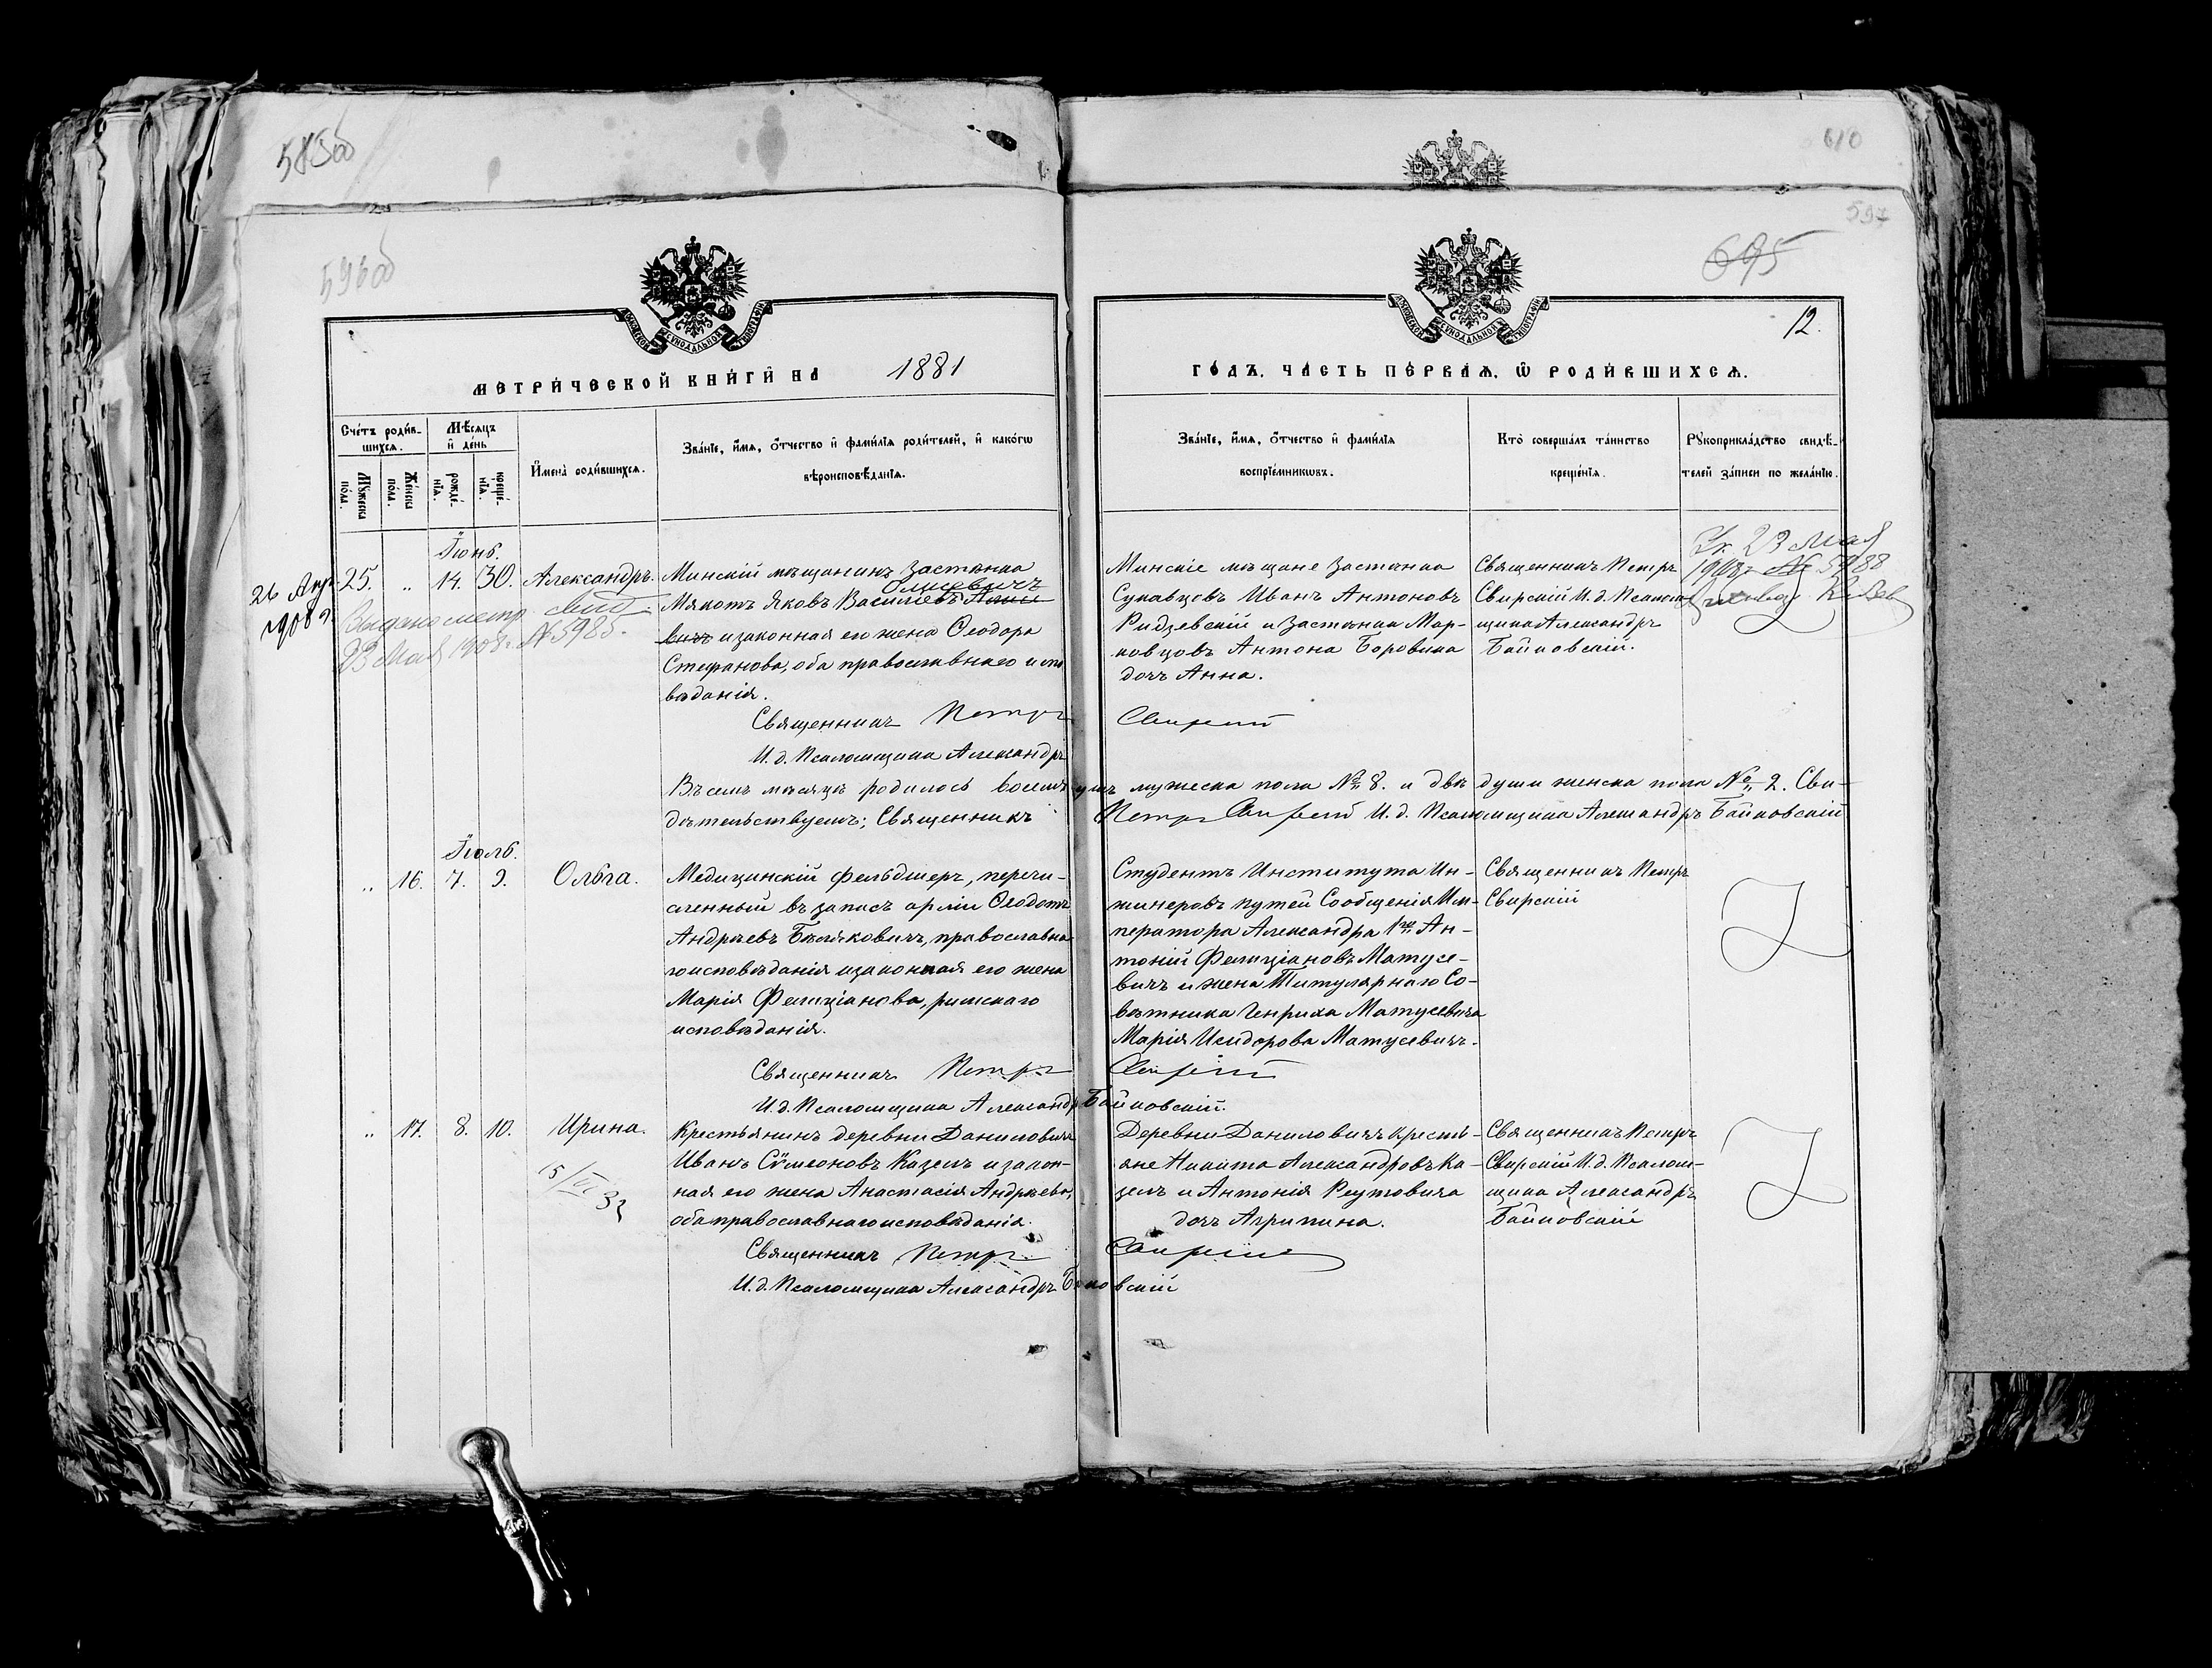 610
597
695
12.
МЕТРИ́ЧЕСКОЙ КНИ́ГИ НА 1881
ГО́ДЪ, ЧА́СТЬ ПЕ́РВАЯ, Ѡ РОДИ́ВШИХСЯ.
Сче́тъ роди́в-
шихся.
Му́жеска по́ла.
Же́нска по́ла.
Мѣ́сяцъ
и де́нь
рожде́-
нїя.
креще́-
нїя.
И҆мена̀ роди́вшихся.
Зва́нїе, и҆́мя, ѻ҆́тчество и҆ фами́лїя роди́телей, и҆ како́гѡ
вѣроисповѣ́данїя.
Зва́нїе, и҆́мя, ѻ҆́тчество и҆ фами́лїя
воспрїе́мникѡвъ.
Кто̀ соверша́лъ та́инство
креще́нїя.
Рꙋкоприкла́дство свидѣ́-
телей за́писи по жела́нїю.
Іюнь.
26 Апр.
1908 г.
25. „ 14. 30. Александръ.
Выдано метр. свид.
23 Мая 1908 г. № 5985.
Минскій мѣщанинъ застѣнка
Мякотъ Яковъ Васильевъ
вичъ и законная его жена Ѳеодора
Стефанова, оба православнаго испо
вѣданія.
Священникъ Петръ Свирскій
И. д. Псаломщика Александръ
Минскіе мѣщане застѣнка
Сукавцовъ Иванъ Антоновъ
Ридзевскій и застѣнка Мар-
ковцовъ Антона Боровика
дочь Анна.
Священникъ Петръ
Свирскій И. д. Псалом
щика Александръ
Байковскій.
23 Мая
1908 г. № 5988
Въ семъ мѣсяцѣ родилось восемь душъ мужеска пола № 8. и двѣ души женска пола № 2. Сви-
дѣтельствуемъ: Священникъ Петръ Свирскій И. д. Псаломщика Александръ Байковскій
Іюль.
„ 16. 7. 9. Ольга.
Медицинскій фельдшеръ, перечи-
сленный въ запасъ арміи Ѳеодотъ
Андреевъ Бѣляковичъ, православна
го исповѣданія и законная его жена
Марія Фелиціанова, римскаго
исповѣданія.
Священникъ Петръ Свирскій
И. д. Псаломщика Александръ Байковскій.
Студентъ Института Ин-
женеровъ путей Сообщенія Им-
ператора Александра 1го Ан-
тоній Фелиціановъ Матусе-
вичъ и жена Титулярнаго Со-
вѣтника Генриха Матусевича
Марія Исидорова Матусевичъ.
Священникъ Петръ
Свирскій
„ 17. 8. 10. Ирина.
Крестьянинъ деревни Даниловичъ
Иванъ Сѵмеоновъ Казекъ и закон-
ная его жена Анастасія Андреева,
оба православнаго исповѣданія.
Священникъ Петръ Свирскій
И. д. Псаломщика Александръ Байковскій
Деревни Даниловичъ крестья-
яне Никита Александровъ Ка-
зекъ и Антонія Реутовича
дочь Агрипина.
Священникъ Петръ
Свирскій И. д. Псалом-
щика Александръ
Байковскій